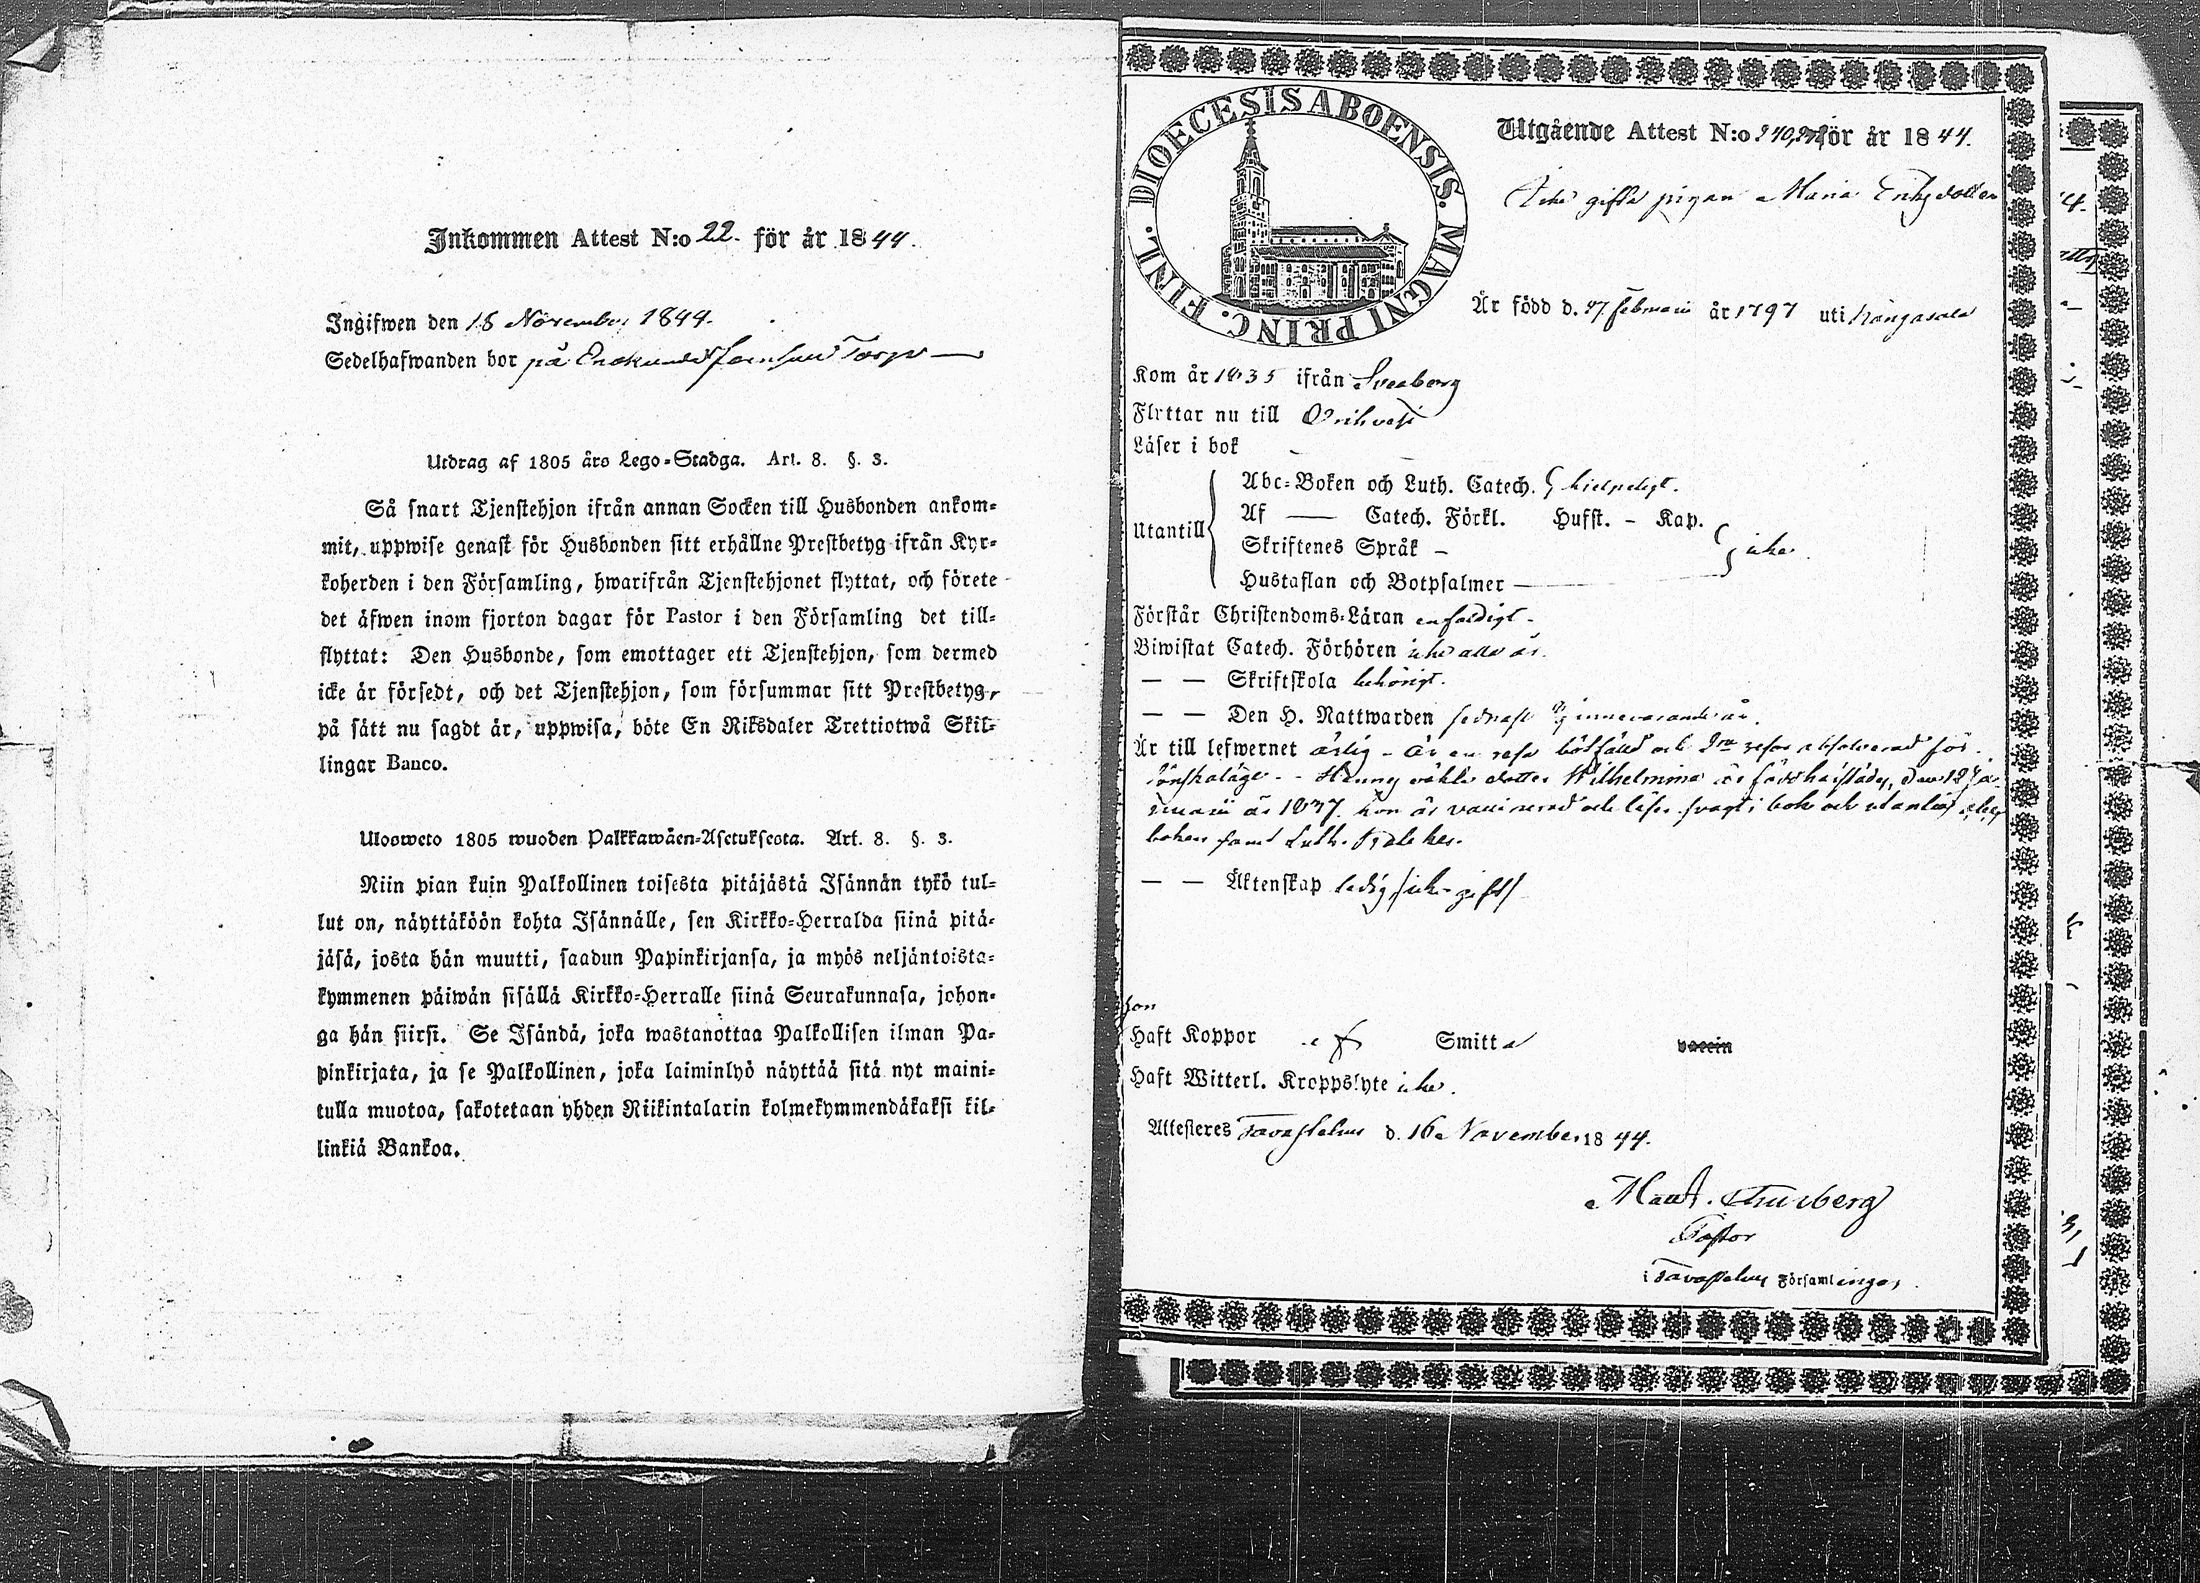 Inkommen Attest N:o 22. för år 1844.
Ingifwen den 18 November 1844.
Sedelhafwanden bor på Torp
Utdrag af 1805 års Lego-Stadga. Art. 8. §. 3.
Så snart Tjenstehjon ifrån annan Socken till Husbonden ankom-
mit, uppwise genast för Husbonden sitt erhållne Prestbetyg ifrån Kyr-
koherden i den Församling, hwarifrån Tjenstehjonet flyttat, och förete
det äfwen inom fjorton dagar för Pastor i den Församling det till-
flyttat: Den Husbonde, som emottager ett Tjenstehjon, som dermed
icke är försedt, och det Tjenstehjon, som försummar sitt Prestbetyg,
på sätt nu sagdt är, uppwisa, böte En Riksdaler Trettiotwå Skil-
lingar Banco.
Ulosweto 1805 wuoden Palkkawäen-Asetuksesta. Art. 8. §. 3.
Niin pian kuin Palkollinen toisesta pitäjästä Isännän tykö tul-
lut on, näyttäköön kohta Isännälle, sen Kirkko-Herralda siinä pitä-
jäsä, josta hän muutti, saadun Papinkirjansa, ja myös neljäntoista-
kymmenen päiwän sisällä Kirkko-Herralle siinä Seurakunnasa, johon-
ga hän siirsi. Se Isändä, joka wastanottaa Palkollisen ilman Pa-
pinkirjata, ja se Palkollinen, joka laiminlyö näyttää sitä nyt maini-
tulla muotoa, sakotetaan yhden Riikintalarin kolmekymmendäkaksi kil-
linkiä Bankoa.
DIOECESIS ABOENSIS. MAGNI PRINC. FINL.
Utgående Attest N:o för år 1844.
Icke gifta pigan Maria Eriksdotter
Är född d. 27 Februarii år 1797 uti Kangasala
Kom år 1835 ifrån Sveaborg
Flyttar nu till Orihvesi
Läser i bok
Abc-Boken och Luth. Catech. hielpeligt.
Utantill
Af — Catech. Förkl. Hufst. - Kap.
Skriftenes Språk - icke.
Hustaflan och Botpsalmer —
Förstår Christendoms-Läran enfaldigt.
Biwistat Catech. Förhören icke alla år.
— — Skriftskola behörigt.
— — Den H. Nattwarden sednast innevarande år.
Är till lefwernet ärlig - är en resa bötfälld och resor absolverad för
lönskaläge. - Hennes oäkta dotter Wilhelmina är född härstädes, den 12 Ja-
nuarii år 1837. hon är vaccinerad och läser svagt i bok och utantill abc
boken samt Luth. Cateches.
— — Äktenskap ledig, icke gift
hon
Haft Koppor Smitta vaccin
Haft Witterl. Kroppslyte icke.
Attesteres Tavastehus d. 16 November 1844.
Pastor
i Tavastehus Församlingar.